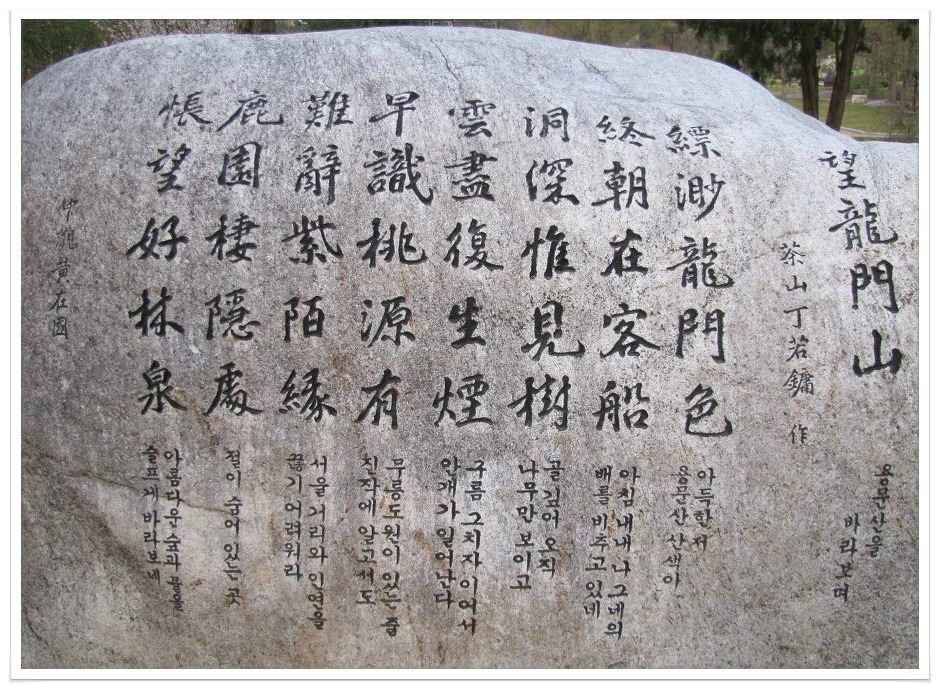 望龍門山
용문산을
바라보며
茶山丁若鏞 作
縹渺龍門色
아득한 저
용문산 산색아
終朝在客船
아침 내내 나그네의
배를 비추고 있네
洞深惟見樹
골 깊어 오직
나무만 보이고
雲盡復生煙
구름 그치자 이어서
안개가 일어난다
早識桃源有
무릉도원이 있는 줄
진작에 알고서도
難辭紫陌緣
서울 거리와 인연을
끊기 어려워라
鹿園棲隱處
절이 숨어 있는 곳
悵望好林泉
아름다운 숲과 물을
슬프게 바라보네
黃在國